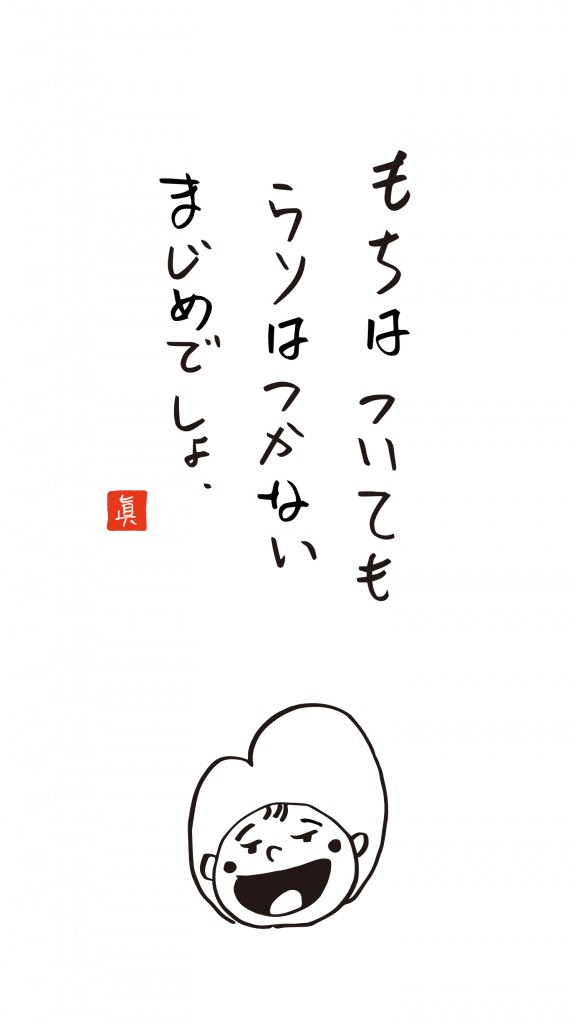 もちはついても
ウソはつかない
まじめでしょ.
眞